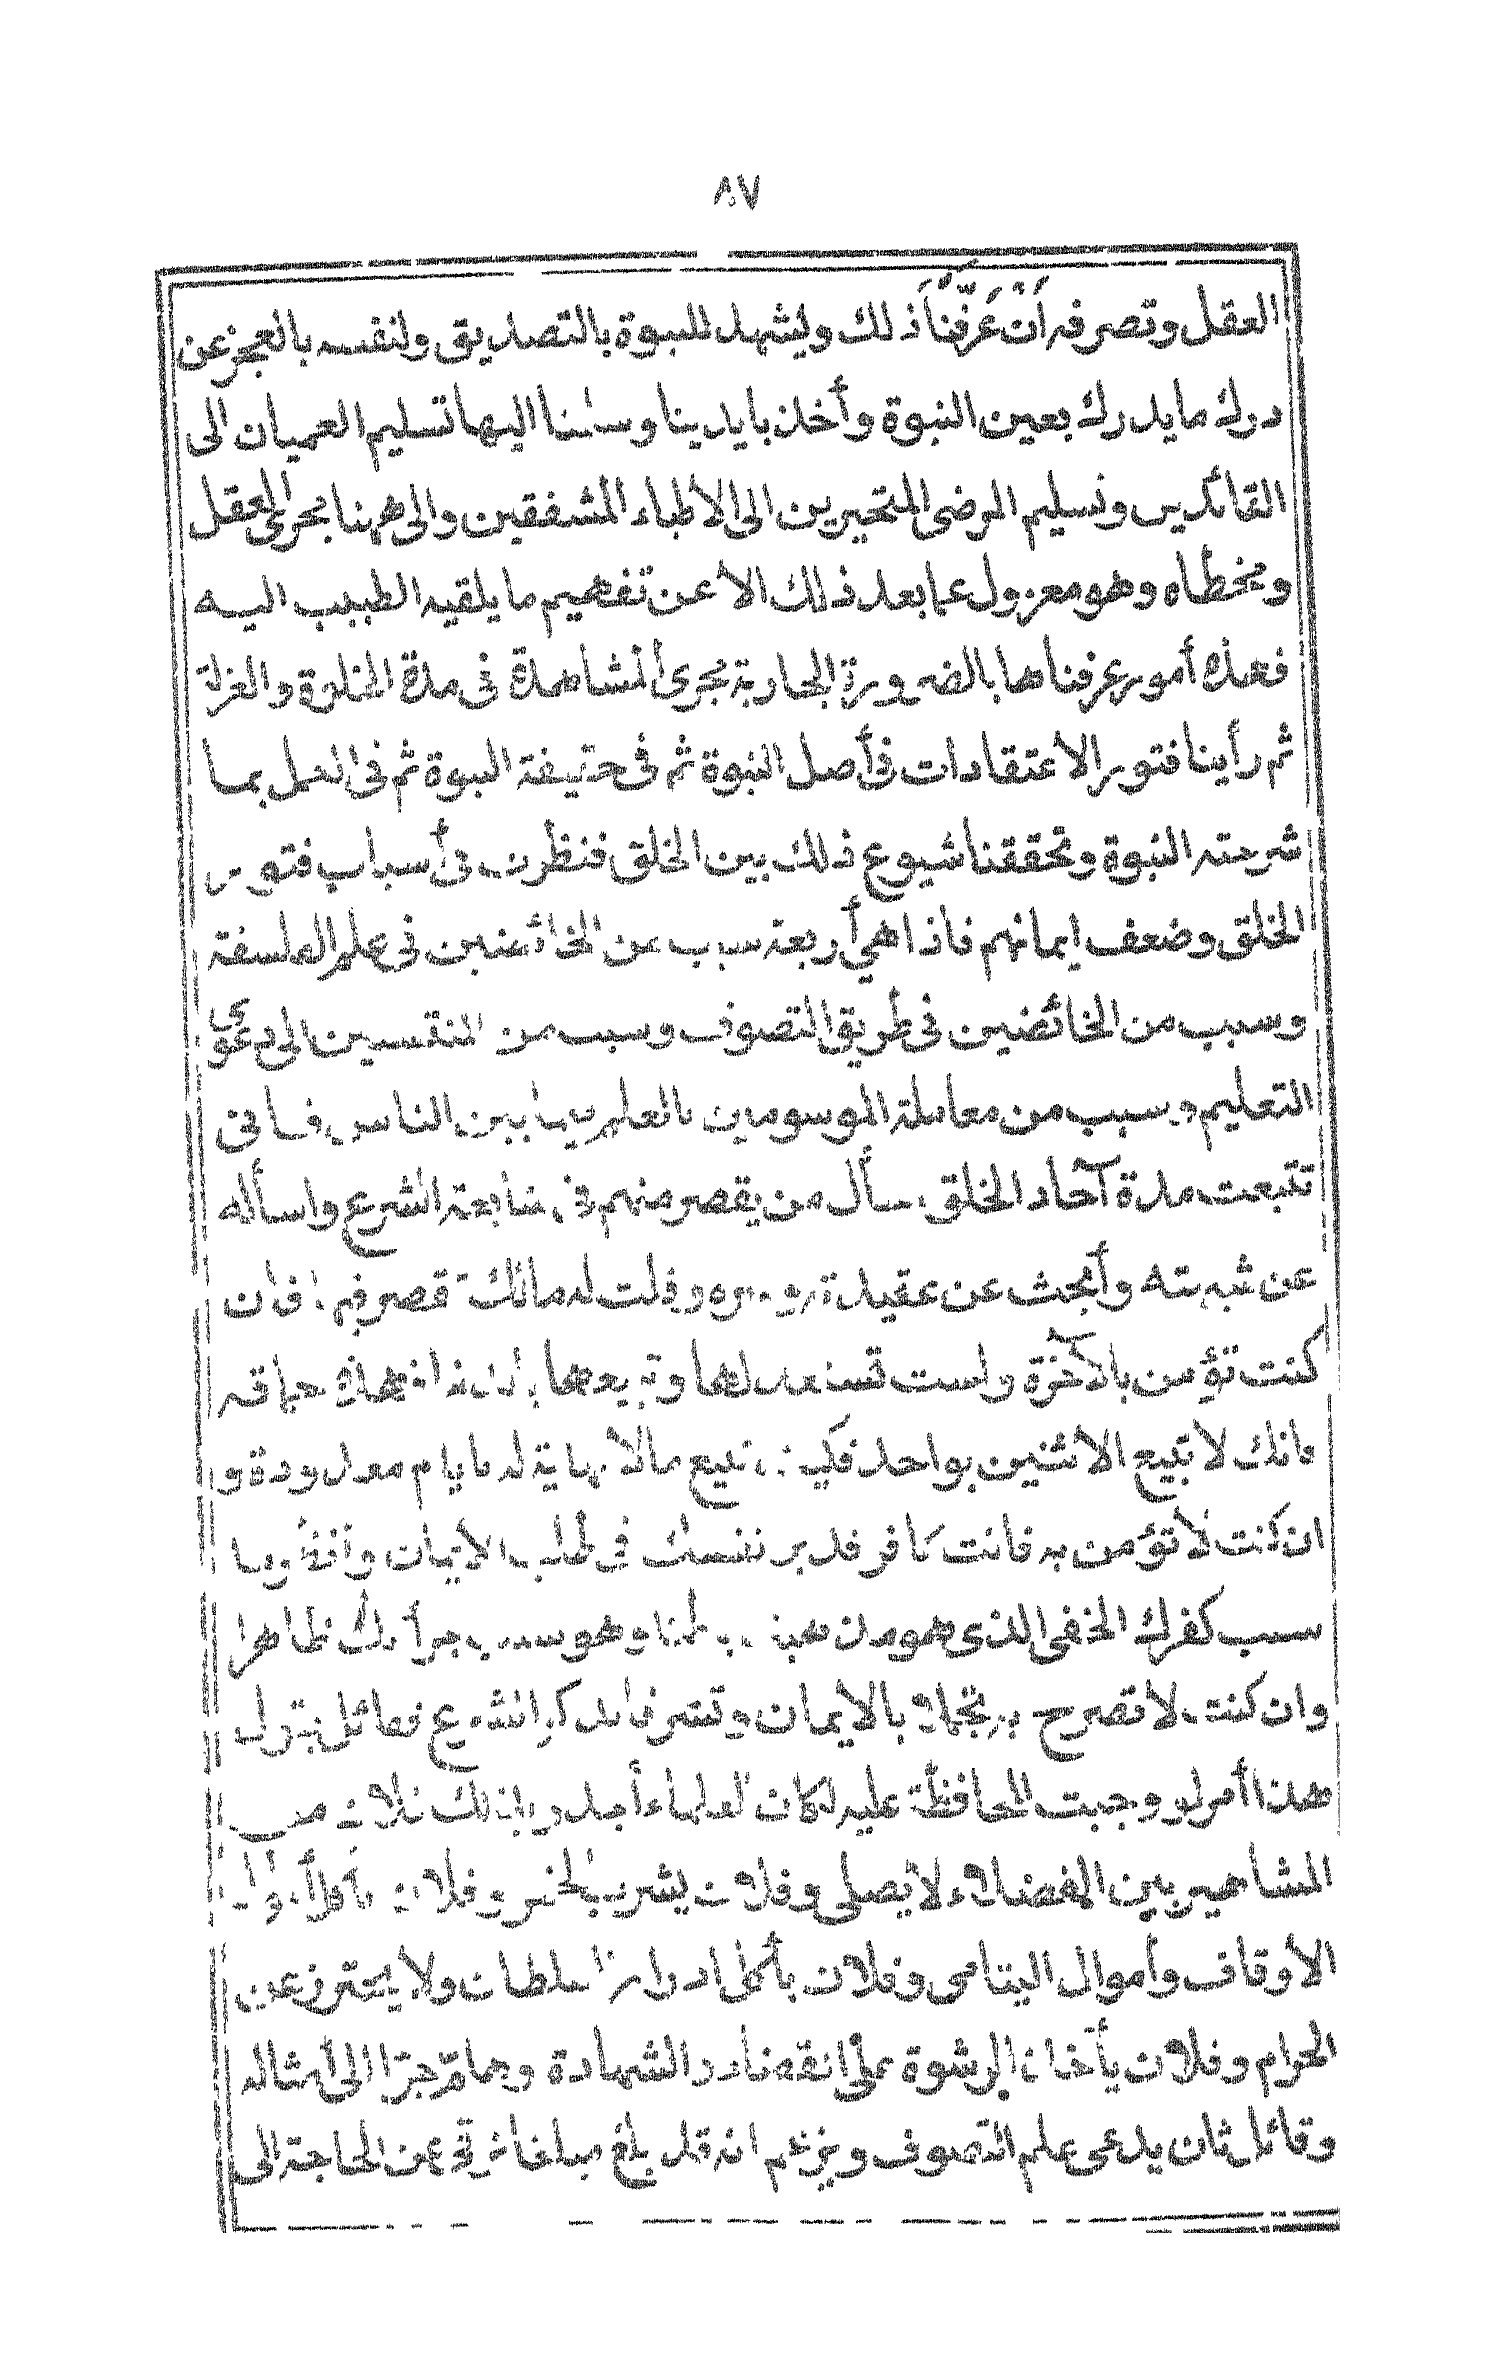 ٨٧
العقل وتصرفه أَنْ عَرَّفَنَا ذلك وليشهد للنبوة بالتصديق ولنفسه بالعجز عن
درك ما يدرك بعين النبوة وأخذ بايدينا وسلمنا اليها تسليم العميان الى
القائدين وتسليم المرضى المتحيرين الى الاطباء المشفقين والى ههنا مجرى العقل
ومخطاه وهو معزول عما بعد ذلك الا عن تفهيم ما يلقيه الطبيب اليه
فهذه أمور عرفناها بالضرورة الجارية مجرى المشاهدة فى مدة الخلوة والعزلة
ثم رأينا فتور الاعتقادات فى أصل النبوة ثم فى حقيقة النبوة ثم فى العمل بما
شرحته النبوة وتحققنا شيوع ذلك بين الخلق فنظرت فى أسباب فتور
الخلق وضعف ايمانهم فاذا هي أربعة سبب من الخائضين فى علم الفلسفة
وسبب من الخائضين فى طريق التصوف وسبب من المنتسبين الى دعوى
التعليم وسبب من معاملة الموسومين بالعلم فيما بين الناس فانى
تتبعت مدة آحاد الخلق أسأل من يقصر منهم فى متابعة الشرع واسأله
عن شبهته وأبحث عن عقيدته وسره وقلت له مالك تقصر فيها فان
كنت تؤمن بالآخرة ولست تستعد لها وتبيعها بالدنيا فهذه حماقة
فانك لا تبيع الاثنين بواحد فكيف تبيع مالا نهاية له بايام معدودة و
ان كنت لا تؤمن به فانت كافر فدبر نفسك فى طلب الايمان وانظر ما
سبب كفرك الخفى الذى هو مذهبك باطنا وهو سبب جرأتك ظاهرا
وان كنت لا تصرح به تجملا بالايمان وتشرفا بذكر الشرع فقائل يقول
هذا أمر لو وجبت المحافظة عليه لكان العلماء أجدر بذلك وفلان من
المشاهير بين الفضلاء لا يصلى وفلان يشرب الخمر وفلان يأكل أموال
الأوقاف وأموال اليتامى وفلان يأكل ادرار السلطان ولا يحترز عن
الحرام وفلان يأخذ الرشوة على القضاء والشهادة وهلم جرّا الى أمثاله
وقائل ثان يدعى علم التصوف ويزعم انه قد بلغ مبلغا ترقى عن الحاجة الى